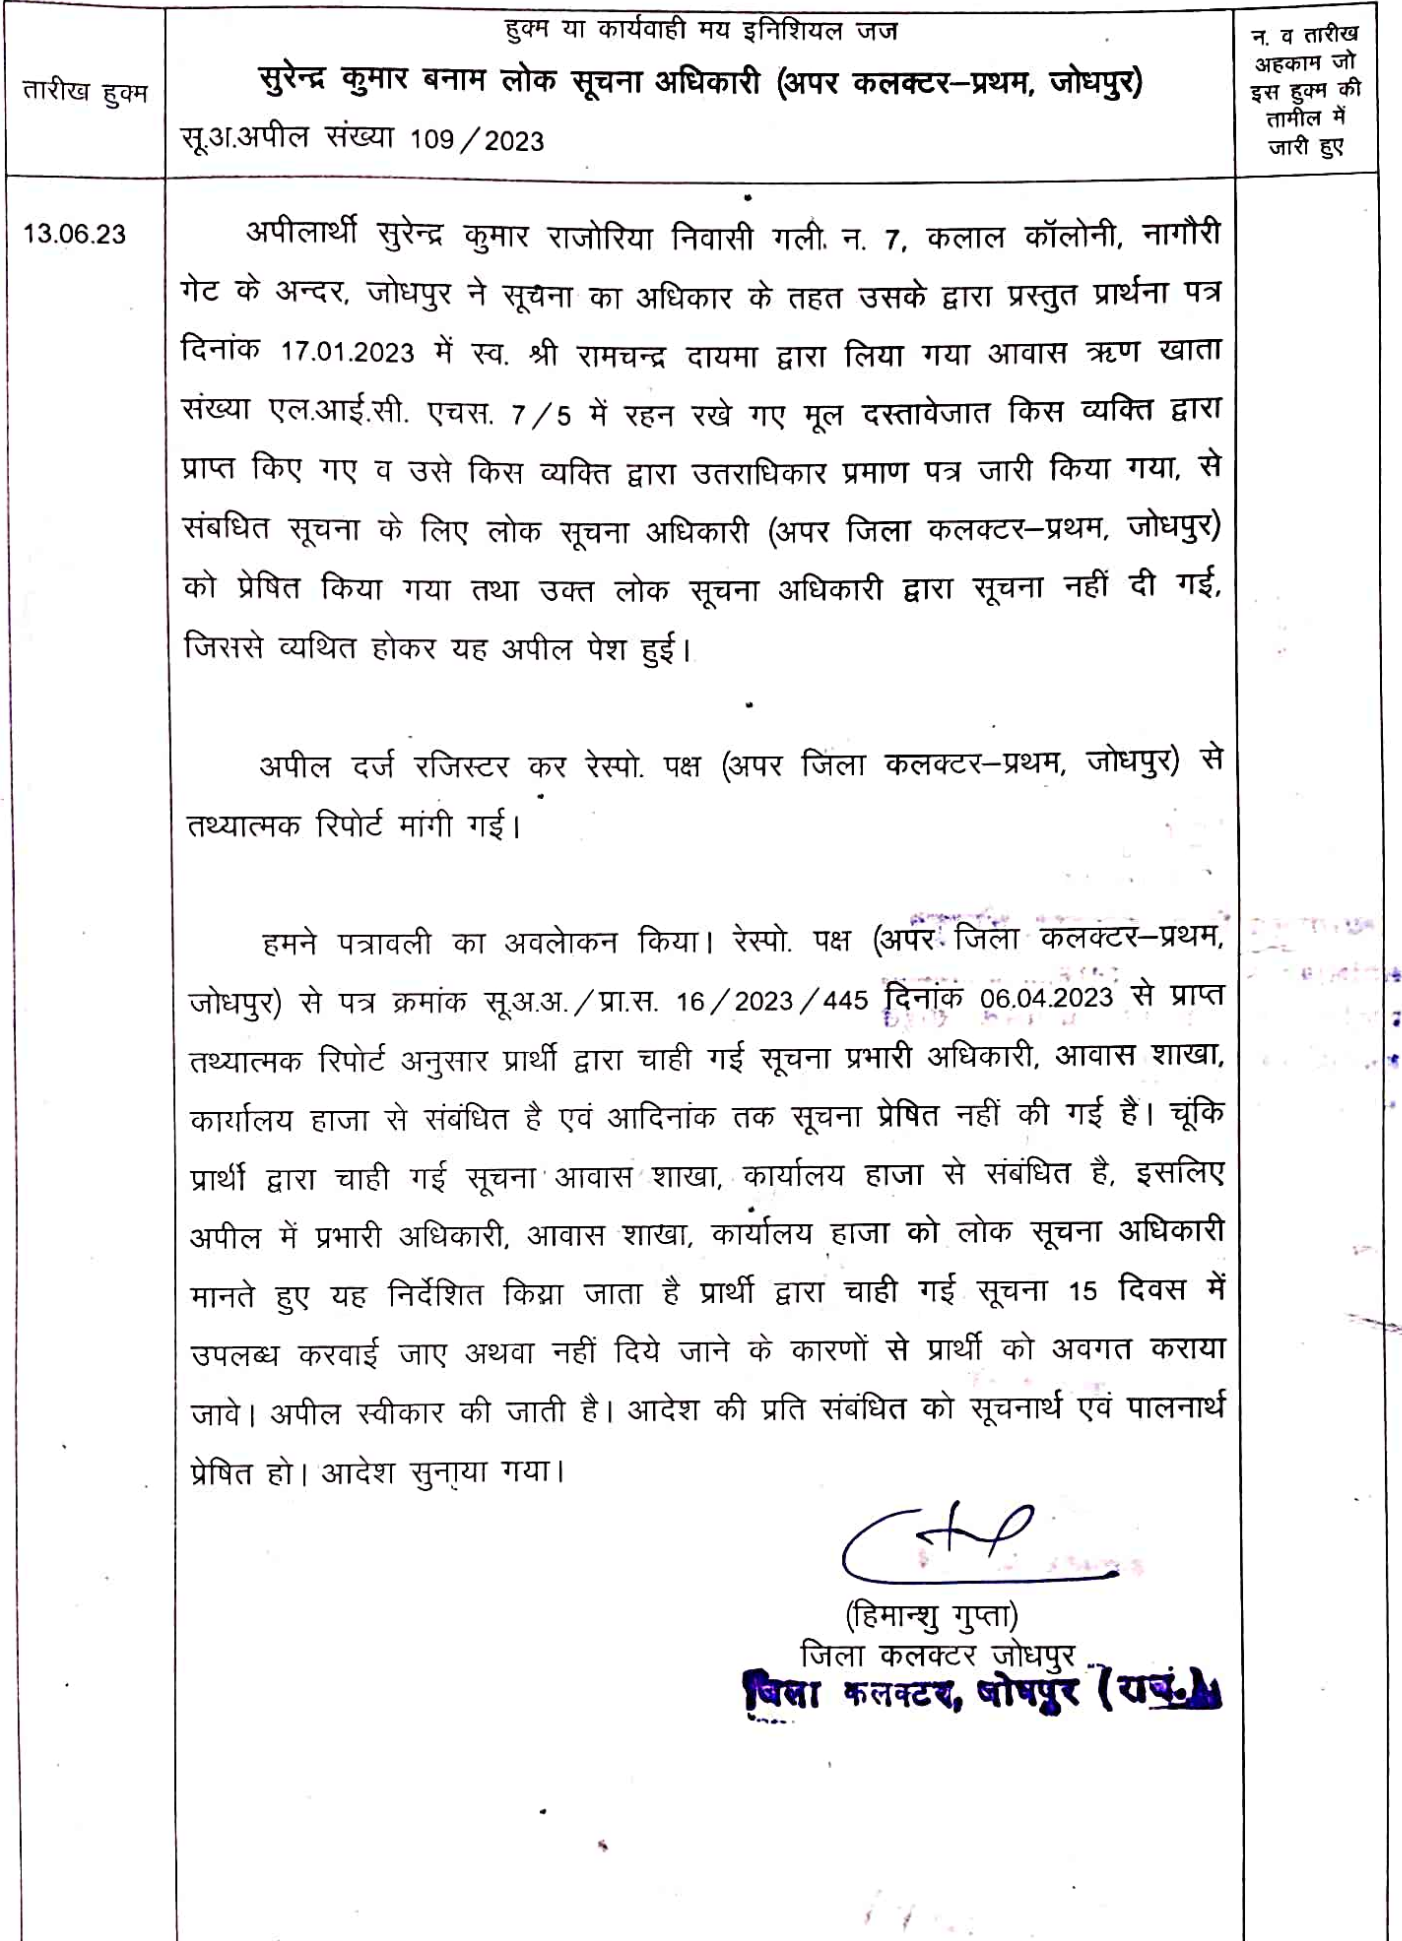 हुक्म या कार्यवाही मय इनिशियल जज
तारीख हुक्म
सुरेन्द्र कुमार बनाम लोक सूचना अधिकारी (अपर कलक्टर–प्रथम, जोधपुर)
सू.अ.अपील संख्या 109/2023
न. व तारीख
अहकाम जो
इस हुक्म की
तामील में
जारी हुए
13.06.23
अपीलार्थी सुरेन्द्र कुमार राजोरिया निवासी गली. न. 7, कलाल कॉलोनी, नागौरी
गेट के अन्दर, जोधपुर ने सूचना का अधिकार के तहत उसके द्वारा प्रस्तुत प्रार्थना पत्र
दिनांक 17.01.2023 में स्व. श्री रामचन्द्र दायमा द्वारा लिया गया आवास ऋण खाता
संख्या एल.आई.सी. एचस. 7/5 में रहन रखे गए मूल दस्तावेजात किस व्यक्ति द्वारा
प्राप्त किए गए व उसे किस व्यक्ति द्वारा उतराधिकार प्रमाण पत्र जारी किया गया, से
संबधित सूचना के लिए लोक सूचना अधिकारी (अपर जिला कलक्टर–प्रथम, जोधपुर)
को प्रेषित किया गया तथा उक्त लोक सूचना अधिकारी द्वारा सूचना नहीं दी गई,
जिससे व्यथित होकर यह अपील पेश हुई।
अपील दर्ज रजिस्टर कर रेस्पो. पक्ष (अपर जिला कलक्टर–प्रथम, जोधपुर) से
तथ्यात्मक रिपोर्ट मांगी गई।
हमने पत्रावली का अवलोकन किया। रेस्पो. पक्ष (अपर जिला कलक्टर–प्रथम,
जोधपुर) से पत्र क्रमांक सू.अ.अ./प्रा.स. 16/2023/445 दिनांक 06.04.2023 से प्राप्त
तथ्यात्मक रिपोर्ट अनुसार प्रार्थी द्वारा चाही गई सूचना प्रभारी अधिकारी, आवास शाखा,
कार्यालय हाजा से संबंधित है एवं आदिनांक तक सूचना प्रेषित नहीं की गई है। चूंकि
प्रार्थी द्वारा चाही गई सूचना आवास शाखा, कार्यालय हाजा से संबंधित है, इसलिए
अपील में प्रभारी अधिकारी, आवास शाखा, कार्यालय हाजा को लोक सूचना अधिकारी
मानते हुए यह निर्देशित किया जाता है प्रार्थी द्वारा चाही गई सूचना 15 दिवस में
उपलब्ध करवाई जाए अथवा नहीं दिये जाने के कारणों से प्रार्थी को अवगत कराया
जावे। अपील स्वीकार की जाती है। आदेश की प्रति संबंधित को सूचनार्थ एवं पालनार्थ
प्रेषित हो। आदेश सुनाया गया।
(हिमान्शु गुप्ता)
जिला कलक्टर जोधपुर
जिला कलक्टर, जोधपुर (राज.)